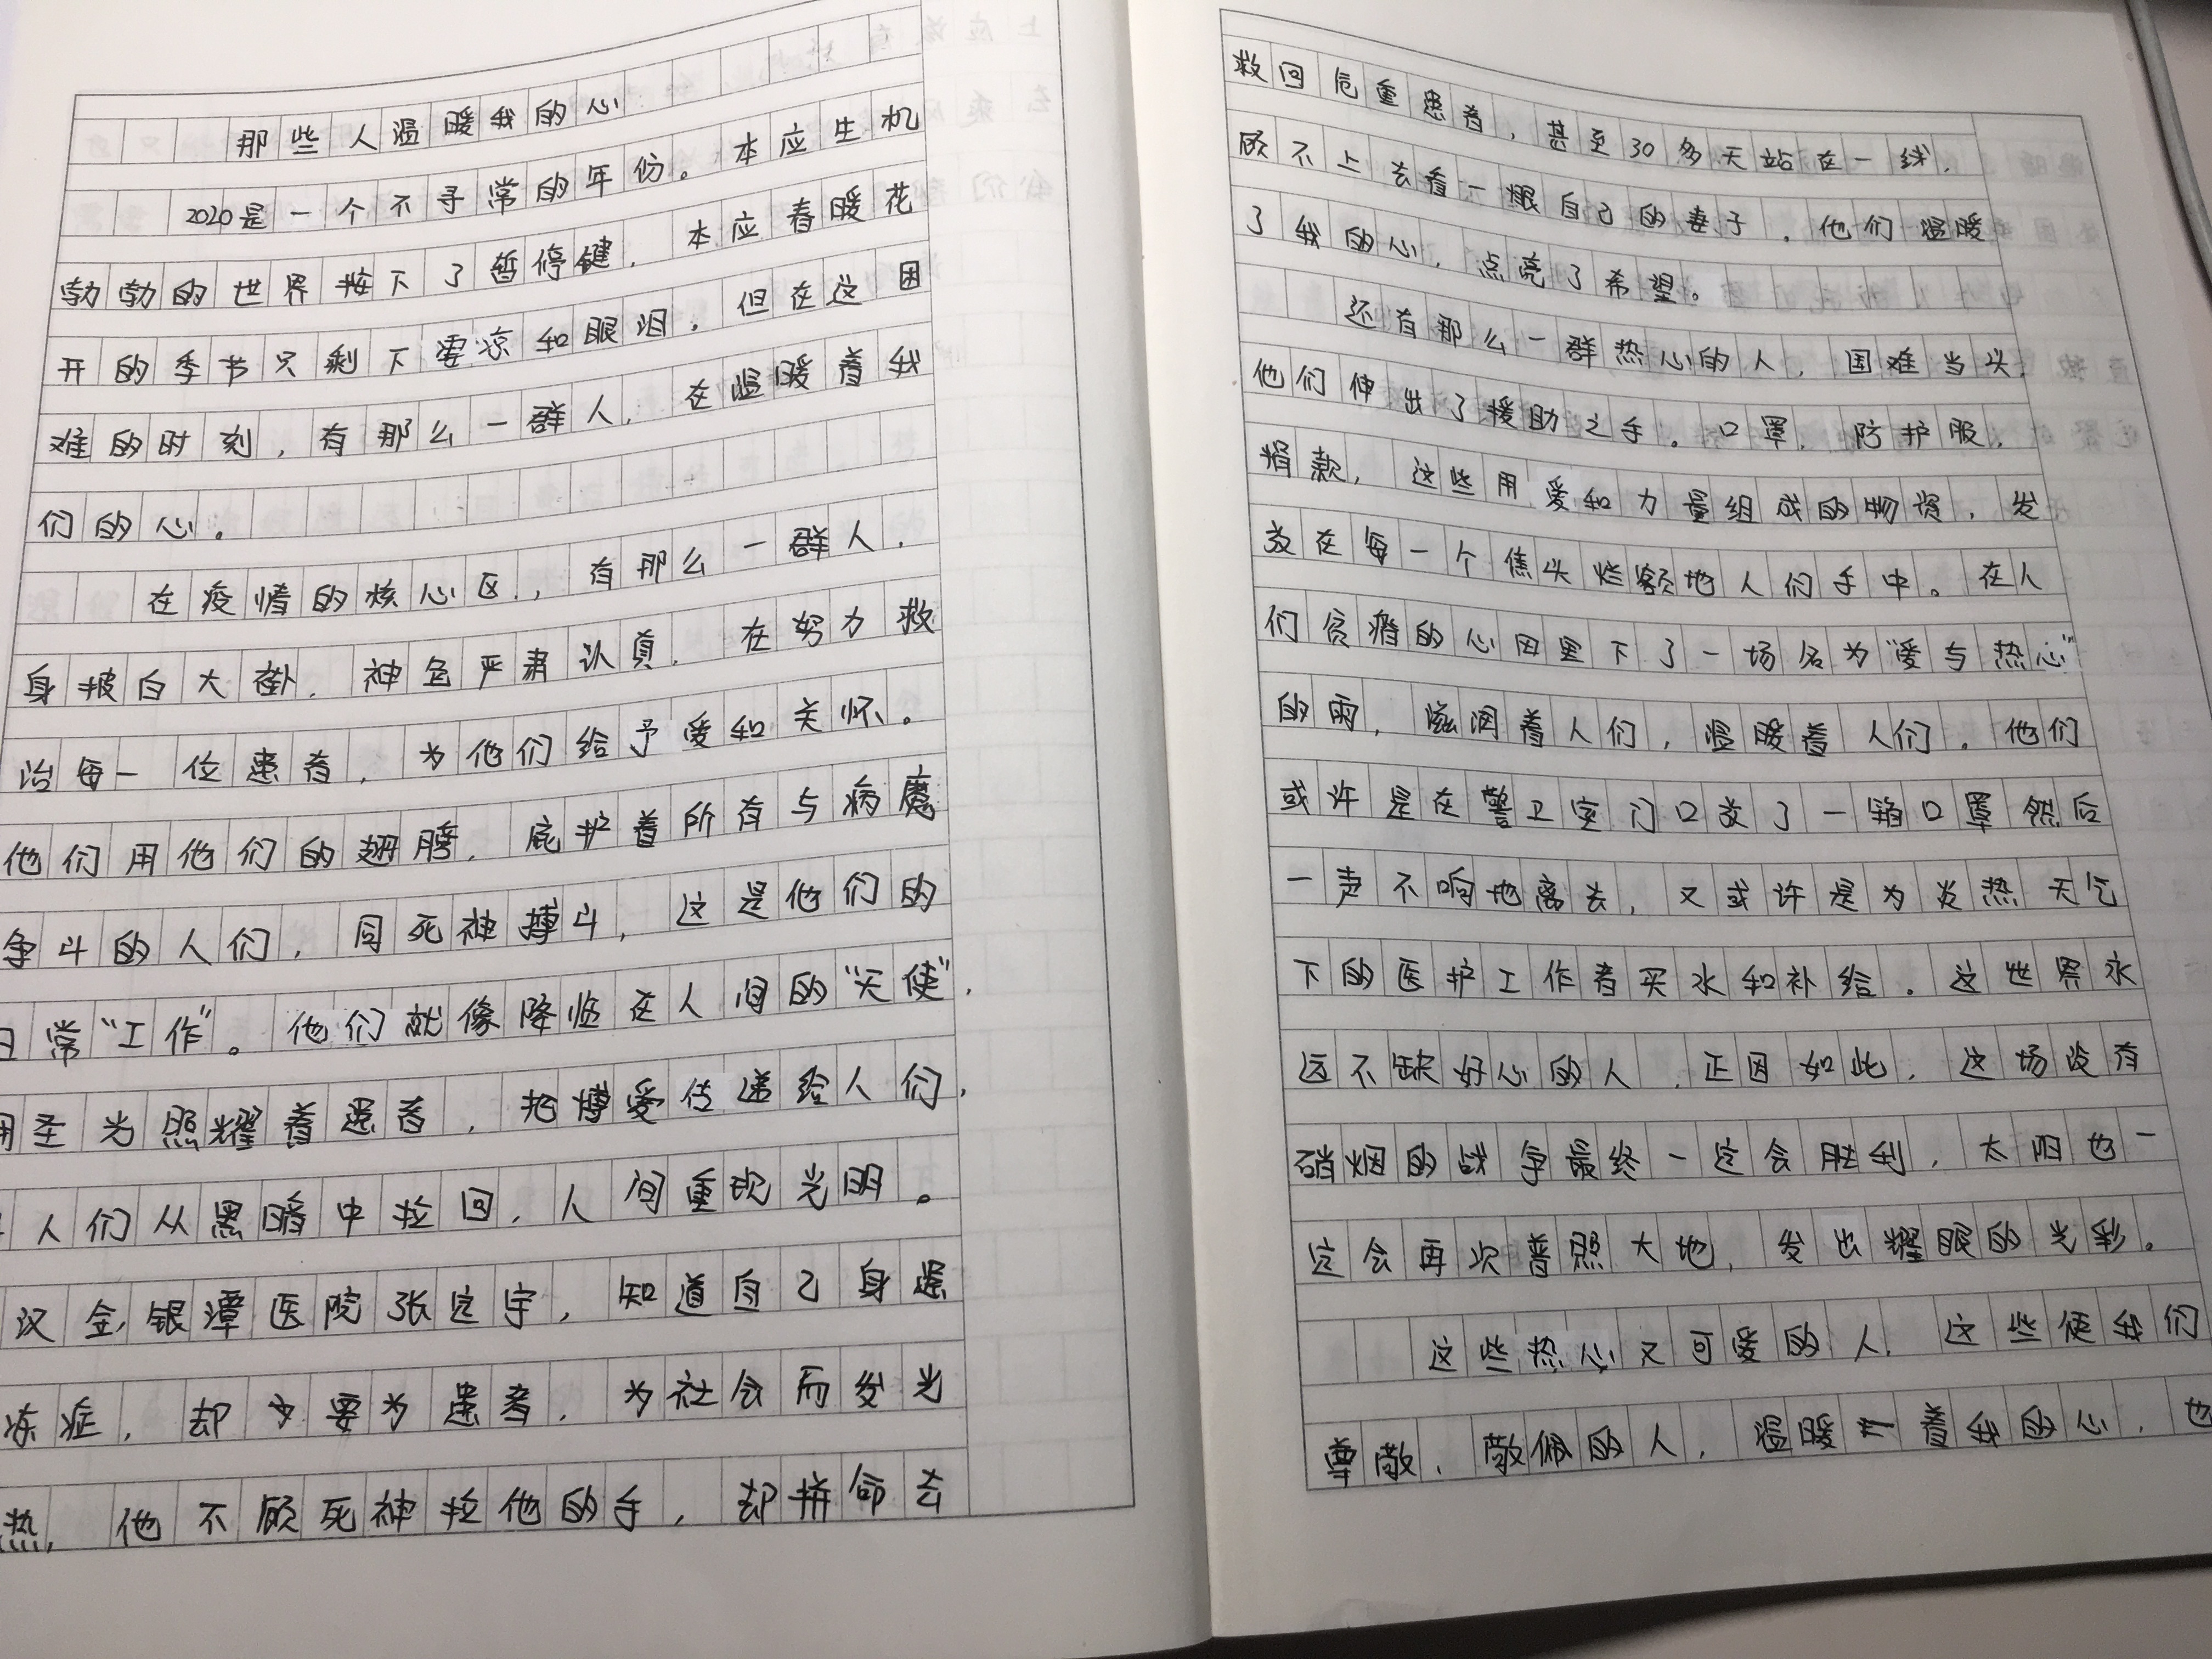 那些人温暖我的心
2020是一个不寻常的年份。本应生机
勃勃的世界按下了暂停键，本应春暖花
开的季节只剩下凄凉和眼泪，但在这困
难的时刻，有那么一群人，在温暖着我
们的心。
在疫情的核心区，有那么一群人，
身披白大褂，神色严肃认真，在努力救
治每一位患者，为他们给予爱和关怀。
他们用他们的翅膀，庇护着所有与病魔
争斗的人们，同死神搏斗，这是他们的
日常“工作”。他们就像降临在人间的“天使”，
用圣光照耀着患者，把博爱传递给人们，
人们从黑暗中拉回，人间重现光明。
汉金银潭医院张定宇，知道自己身患
冻症，却要为患者，为社会而发光
热，他不顾死神拉他的手，却拼命去
救回危重患者，甚至30多天站在一线，
顾不上去看一眼自己的妻子。他们温暖
了我的心，点亮了希望。
还有那么一群热心的人，国难当头，
他们伸出了援助之手。口罩，防护服，
捐款，这些用爱和力量组成的物资，发
放在每一个焦头烂额地人们手中。在人
们贫瘠的心田里下了一场名为“爱与热心”
的雨，滋润着人们，温暖着人们。他们
或许是在警卫室门口放了一箱口罩然后
一声不响地离去，又或许是为炎热天气
下的医护工作者买水和补给。这世界永
远不缺好心的人，正因如此，这场没有
硝烟的战争最终一定会胜利，太阳也一
定会再次普照大地，发出耀眼的光彩。
这些热心又可爱的人，这些使我们
尊敬，敬佩的人，温暖着我的心，也